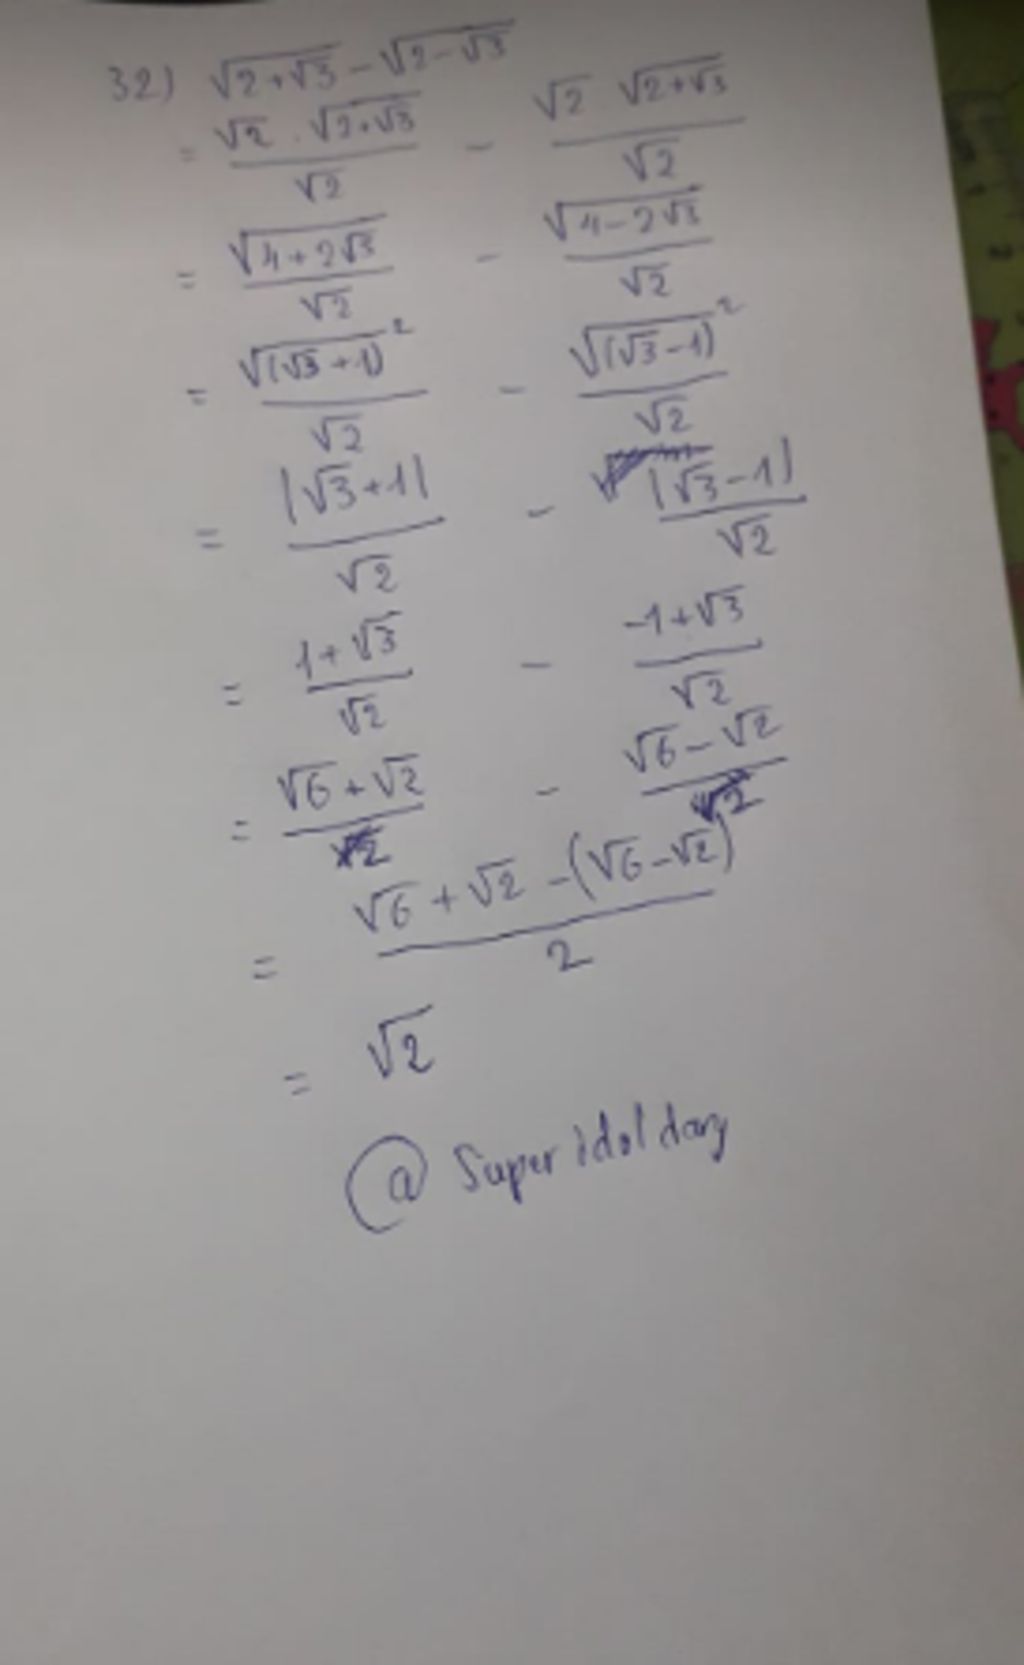 32) √(2+√3) - √(2-√3)
= (√2 . √(2+√3))/√2 - (√2 . √(2+√3))/√2
= √(4+2√3)/√2 - √(4-2√3)/√2
= √((√3+1)²)/√2 - √((√3-1)²)/√2
= |√3+1|/√2 - |√3-1|/√2
= (1+√3)/√2 - (-1+√3)/√2
= (√6+√2)/2 - (√6-√2)/2
= (√6+√2-(√6-√2))/2
= √2
@ Super idol dang